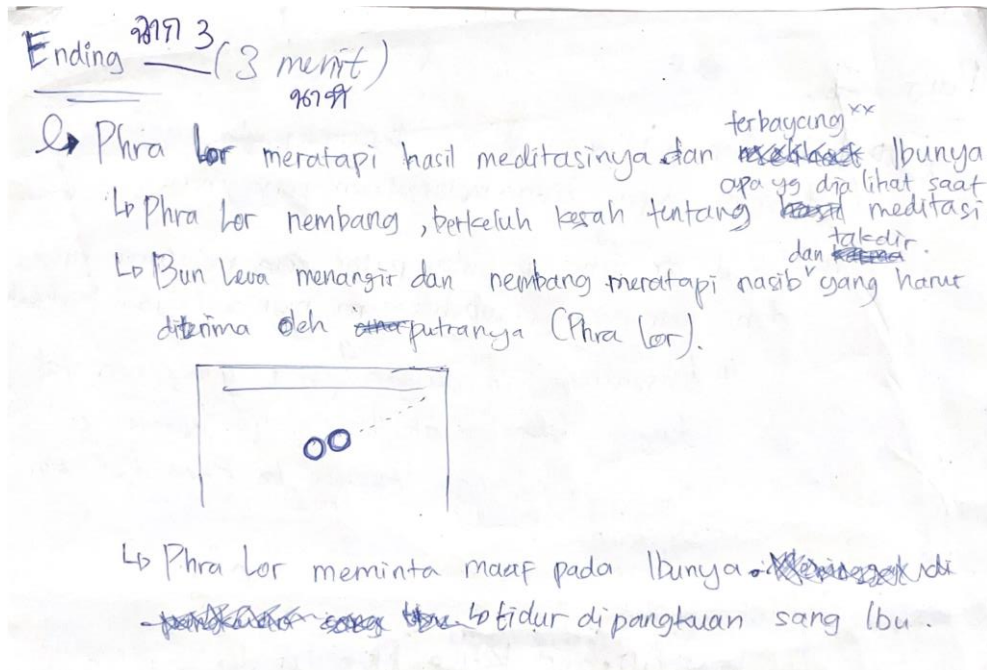 ฉาก 3
Ending (3 menit)
นาที
Phra Lor meratapi hasil meditasinya dan terbayang xx Ibunya
↳ Phra Lor nembang, berkeluh kesah tentang apa yg dia lihat saat meditasi
↳ Bun Leva menangis dan nembang meratapi nasib dan takdir yang harus
diterima oleh putranya (Phra Lor).
↳ Phra Lor meminta maaf pada Ibunya. di
↳ tidur di pangkuan sang Ibu